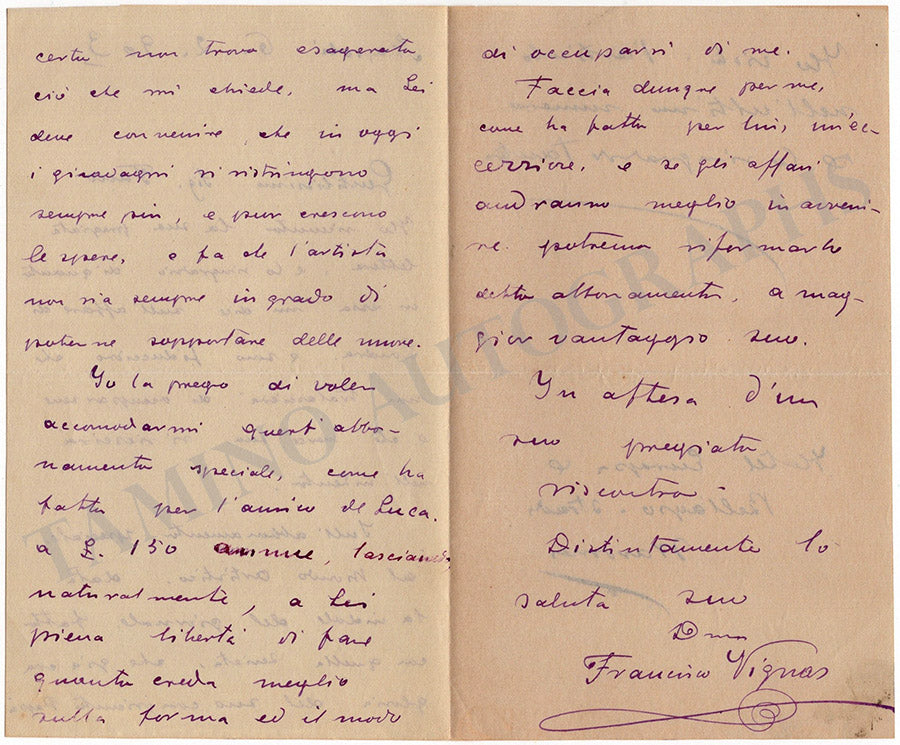 certo non trova esagerata
ciò che mi chiede, ma Lei
deve convenire che in oggi
i guadagni si ristringono
sempre più, e pur crescono
le spese, e fa che l'artista
non sia sempre in grado di
poterne sopportare delle nuove.
Io la prego di voler
accomodarmi questi abbo-
namento speciale, come ha
fatto per l'amico de Luca.
a £. 150 annue, lasciando
naturalmente, a Lei
piena libertà di fare
quanto creda meglio
sulla forma ed il modo
di occuparsi di me.
Faccia dunque per me,
come ha fatto per lui, un'ec-
cezione, e se gli affari
andranno meglio in avveni-
re. potremo riformarlo
detto abbonamento, a mag-
gior vantaggio suo.
In attesa d'un
suo pregiato
riscontro
Distintamente lo
saluta suo
Dmo
Francisco Vignas
TAMINO AUTOGRAPHS